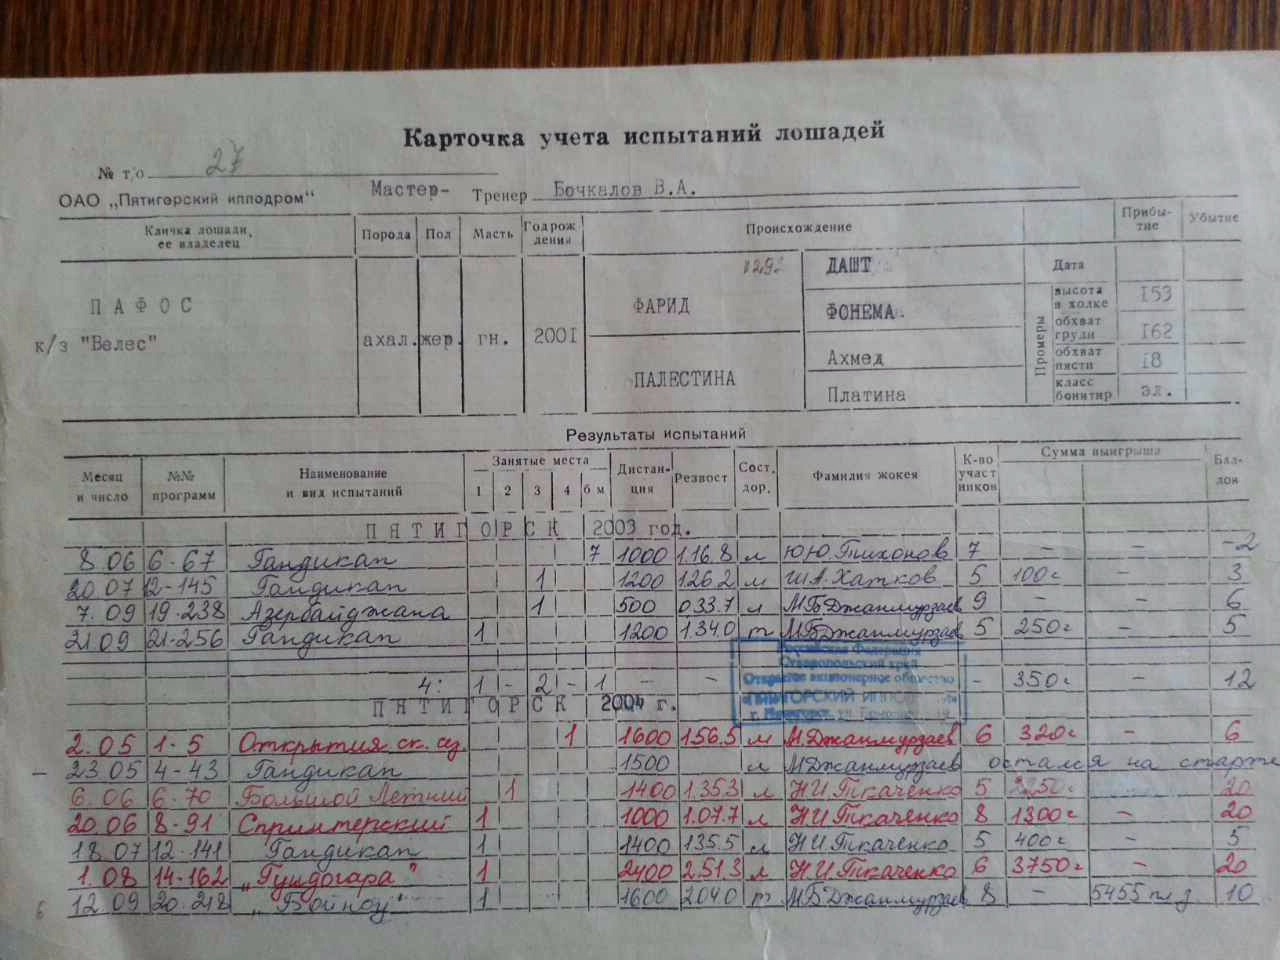 Карточка учета испытаний лошадей
№ т/о 27
ОАО „Пятигорский ипподром“ Мастер- Тренер Бочкалов В.А.
Кличка лошади, ее владелец Порода Пол Масть Год рождения Происхождение Прибытие Убытие
ПАФОС
к/з "Велес"
ахал. жер. гн. 2001
ФАРИД
ПАЛЕСТИНА
ДАШТ
ФОНЕМА
Ахмед
Платина
Промеры
Дата
высота в холке 153
обхват груди 162
обхват пясти 18
класс бонитир эл.
Результаты испытаний
Месяц и число №№ программ Наименование и вид испытаний Занятые места 1 2 3 4 б м Дистанция Резвост Сост. дор. Фамилия жокея К-во участников Сумма выигрыша Баллов
ПЯТИГОРСК 2003 год.
8.06 6-67 Гандикап 7 1000 1.16.8 л Ю.Ю.Тихонов 7 – – -2
20.07 12-145 Гандикап 1 1200 1.26.2 л Ш.А.Хатков 5 100г – 3
7.09 19-238 Азербайджана 1 500 0.33.7 л М.Б.Джанмурзаев 9 – – 6
21.09 21-256 Гандикап 1 1200 1.34.0 т М.Б.Джанмурзаев 5 250г – 5
Российская Федерация
Ставропольский край
Открытое акционерное общество
4: 1 - 2 - 1 – – – 350г – 12
ПЯТИГОРСК 2004 г.
2.05 1-5 Открытия ск. сез. 1 1600 1.56.5 л М.Джанмурзаев 6 320г – 6
– 23.05 4-43 Гандикап 1500 л М.Джанмурзаев остался на старте
6.06 6-70 Большой Летний 1 1400 1.35.3 л Н.И.Ткаченко 5 20
20.06 8-91 Спринтерский 1 1000 1.07.7 л Н.И.Ткаченко 8 1300г – 20
18.07 12-141 Гандикап 1 1400 1.35.5 л Н.И.Ткаченко 5 400г – 5
1.08 14-162 „Гундогара" 1 2400 2.51.3 л Н.И.Ткаченко 6 3750г – 20
6 12.09 20-218 „Бойноу" 1 1600 2.04.0 т М.Б.Джанмурзаев 8 – 5455 10